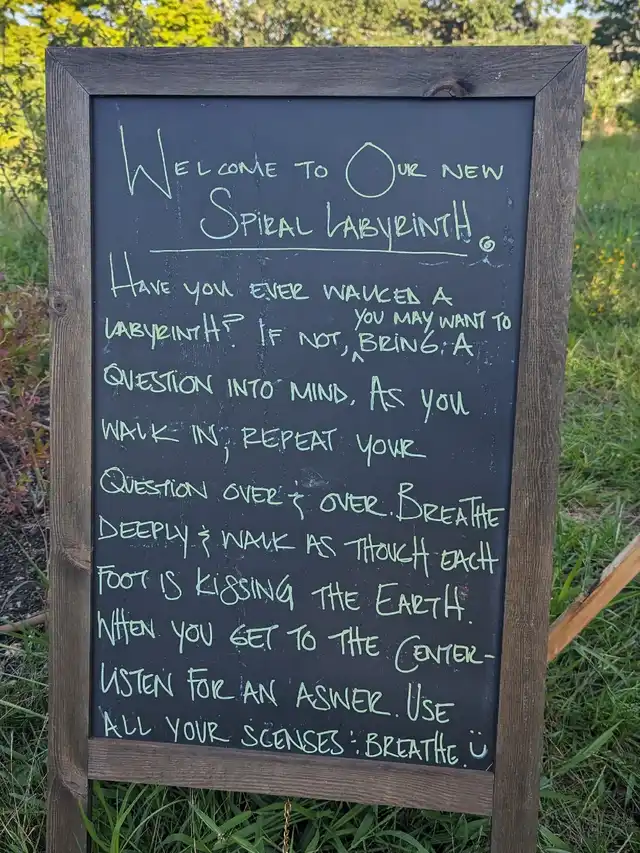 WELCOME TO OUR NEW
SPIRAL LABYRINTH.
HAVE YOU EVER WALKED A
LABYRINTH? IF NOT, YOU MAY WANT TO BRING A
QUESTION INTO MIND. AS YOU
WALK IN, REPEAT YOUR
QUESTION OVER & OVER. BREATHE
DEEPLY & WALK AS THOUGH EACH
FOOT IS KISSING THE EARTH.
WHEN YOU GET TO THE CENTER-
LISTEN FOR AN ASWER. USE
ALL YOUR SCENSES : BREATHE. Ü